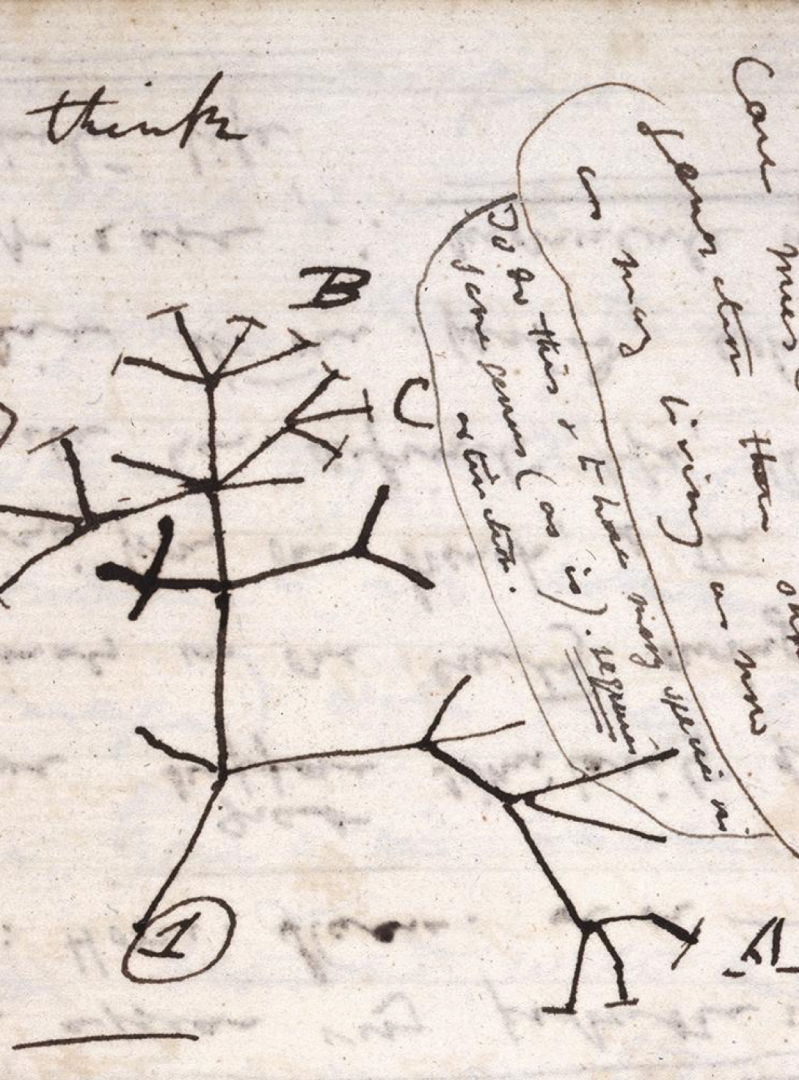 think
Case mus
generation then
as many living as now
To do this & to have many species in
same genus (as is). requires
extinction.
B
C
A
1